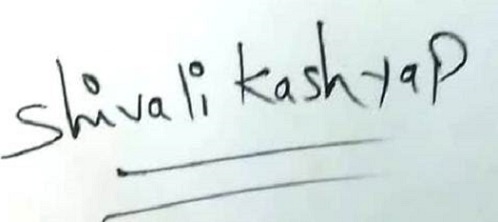 Shivali Kashyap